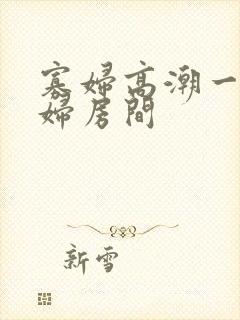 寡婦高潮一
婦房間
新雪